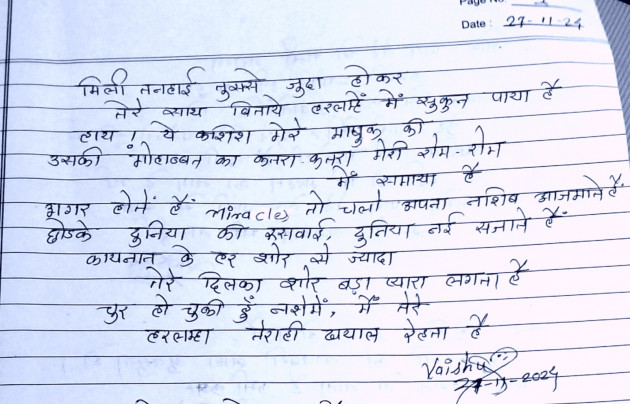 Page No.
Date : 27-11-24
मिली तनहाई तुमसे जुदा होकर
तेरे साथ बिताये हरलम्हें में सुकुन पाया है
हाय! ये कशिश मेरे माषुक की
उसकी मोहाब्बत का कतरा-कतरा मेरी रोम-रोम
में समाया है
अगर होतें हैं miracles तो चलो अपना नशिब आजमातें हैं
छोडके दुनिया की रुसवाई, दुनिया नई सजाते हैं
कायनात के हर शोर से ज्यादा
तेरे दिलका शोर बड़ा प्यारा लगता है
चुर हो चुकी हुँ नशेमें, मैं तेरे
हरलम्हा तेराही खयाल रेहता है
Vaishu
27-11-2024